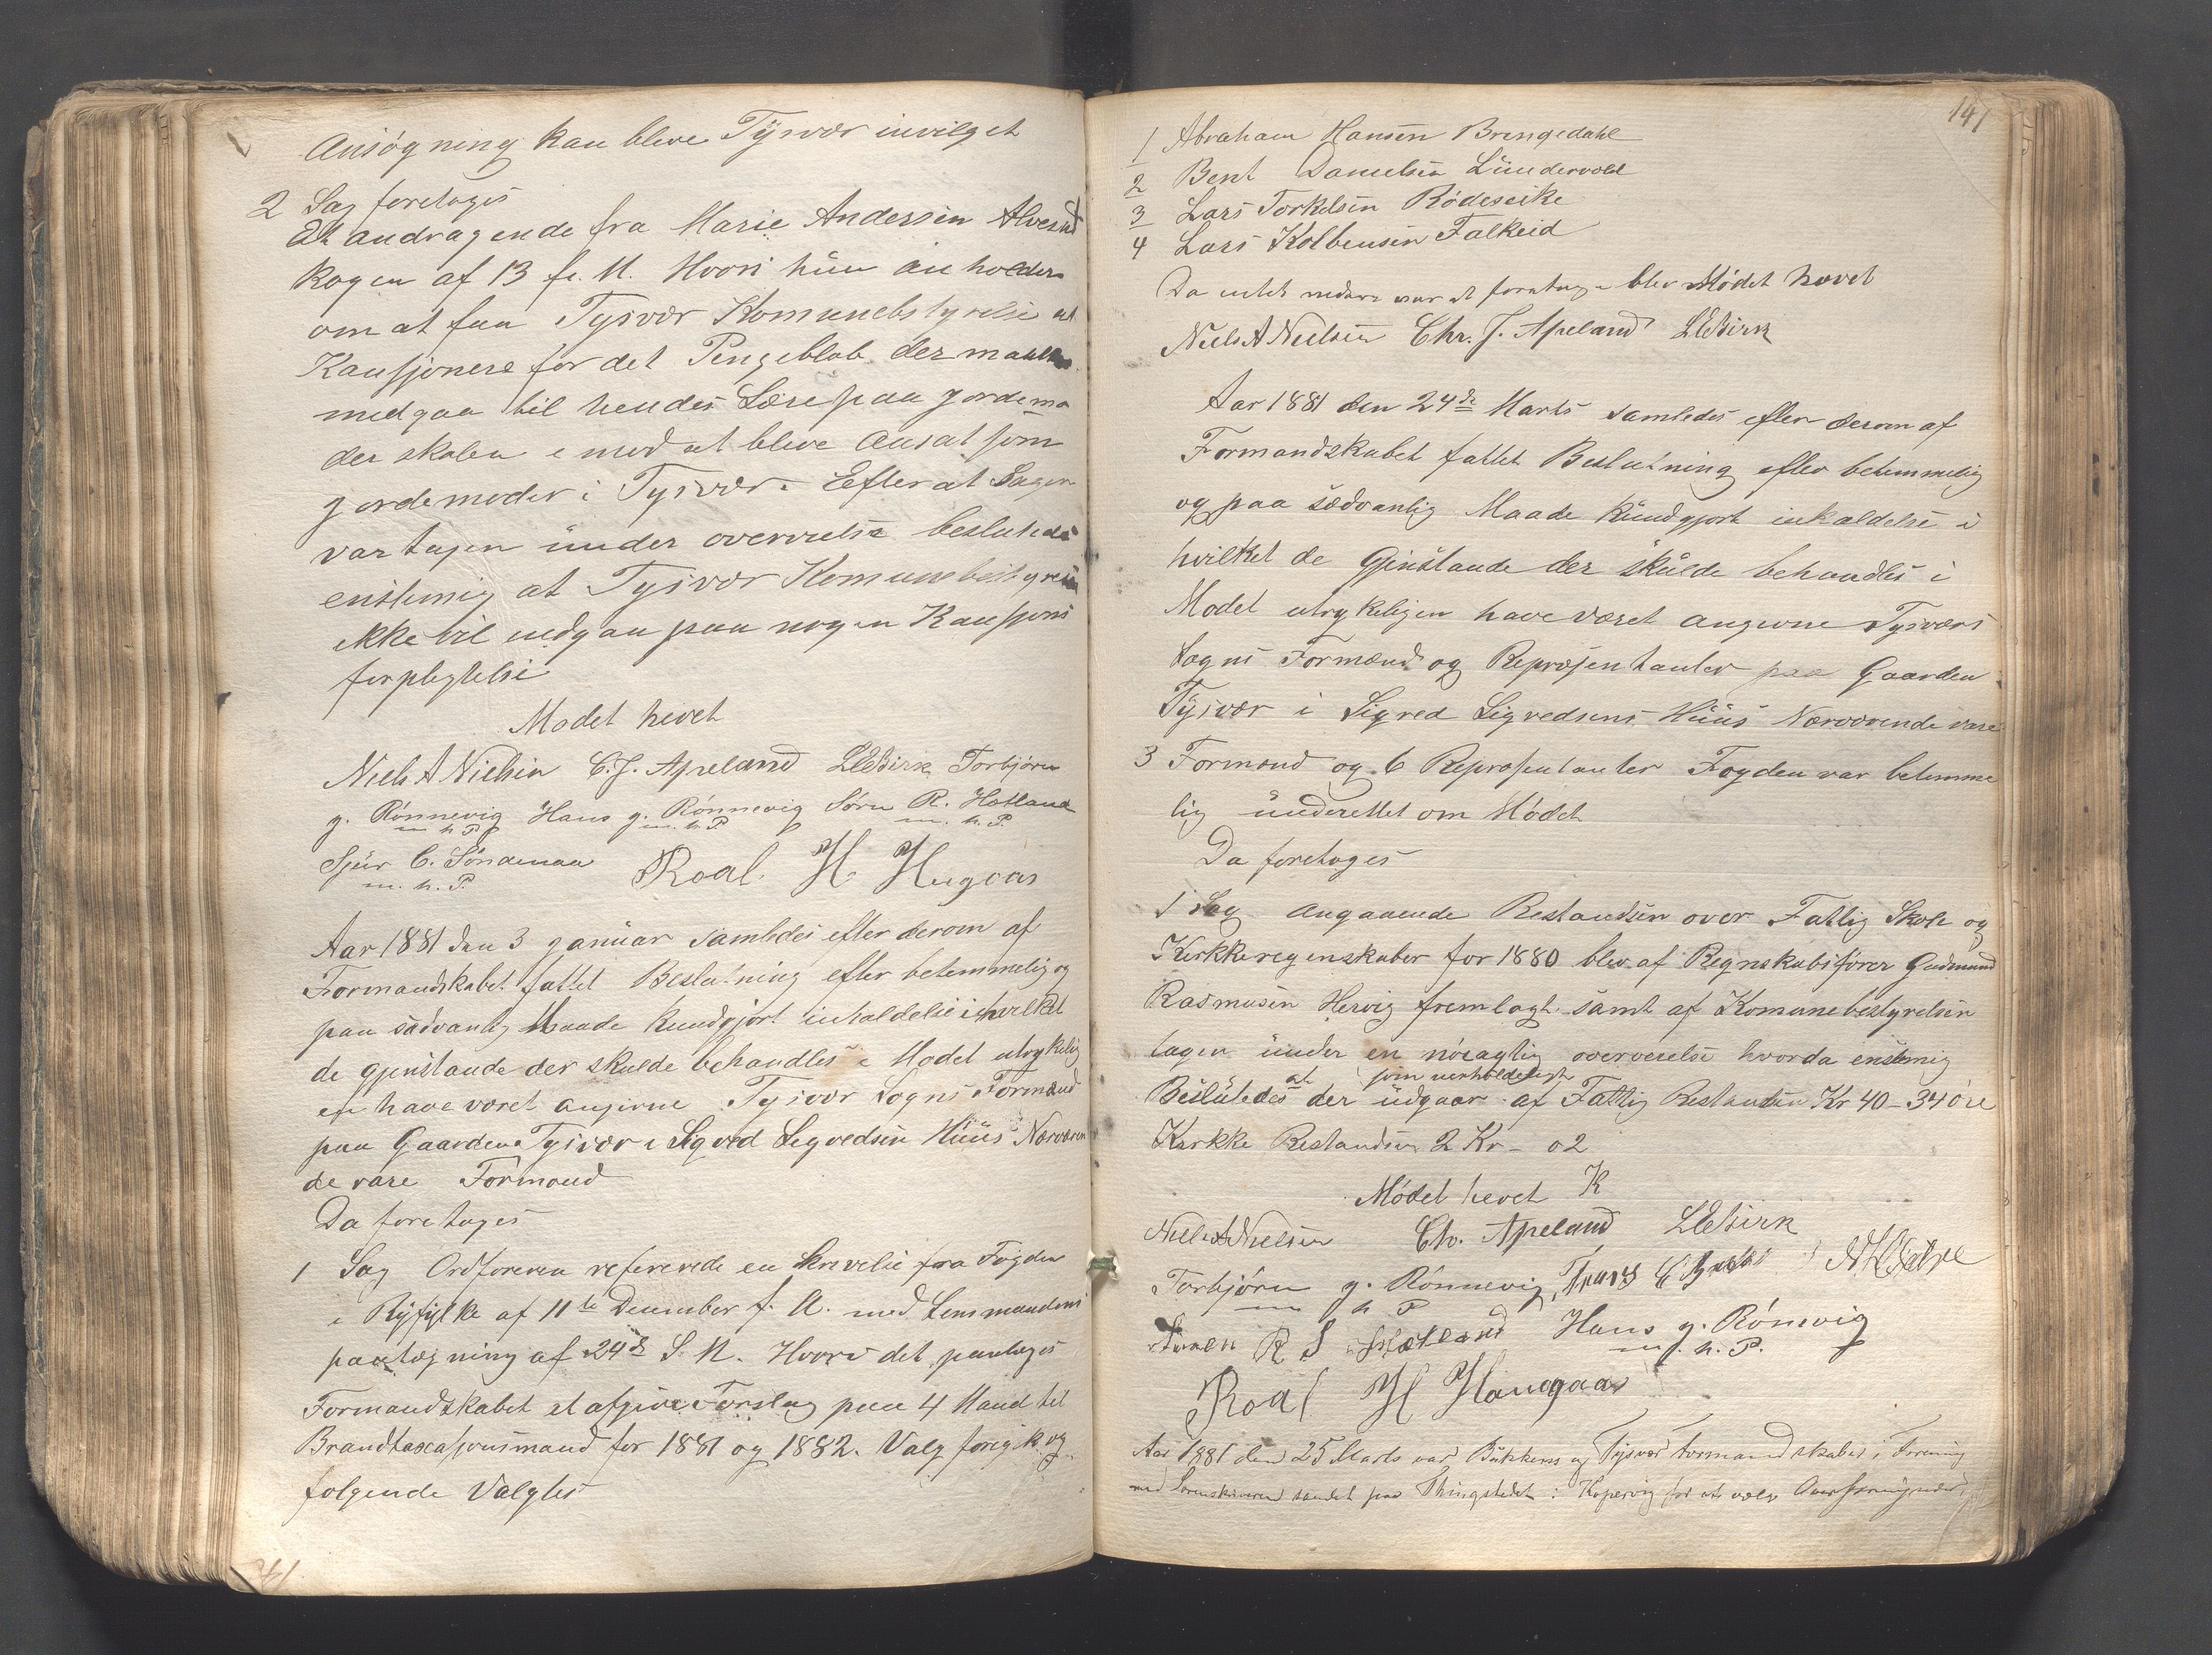 Ansøgning kan blive Tysvær invilget
2 Sag foretoges
Et andragende fra Marie Andersen
Kogen af 13 f. M. Hvori hun anholder
om at faa Tysvær Komunebstyrelse at
Kausjonere for det Pengebløb der maatte
medgaa til hendes Lære paa jordemo
der skolen imod at blive Ansat som
jordemoder i Tysvær. Efter at Sagen
var tagen under overveielse besluttedes
enstemig at Tysvær Komunebestyrelse
ikke vil indgaa paa nogen Kausjons
forplegtelse
Mødet hevet
Niels A Nielsen C. J. Apeland L E Birk Torbjørn
g. Rønnevig Hans g. Rønnevig Søren R. Hetland
m h P m. h. P m. h. P.
Sjur C. Søndenaa Roal. H Hugaas
m. h. P.
Aar 1881 den 3 ganuar samledes efter derom af
Formandskabet fattet Beslutning efter betemmelig og
paa sædvanlig Maade kundgjort inkaldelse i hvilket
de gjenstande der skulde behandles i Mødet utrykelig
en have været angivne Tysvær Sogns Formænd
paa Gaarden Tysvær i Sigved Segvedsen Huus Nærværen
de vare Formænd
Da foretoges
1 Sag Ordføreren refererede en skrivelse fra Fogden
i Ryfylke af 11te December f. A. med Lensmandens
paategning af 24de S. M. Hvori det paalæges
Formandskabet at afgive Forslag paa 4 Mand til
Brandtaxasjonsmænd for 1881 og 1882. Valg foregik og
følgende Valgtes
141
1 Abraham Hansen Bringedahl
2 Bent Danielsen Lundervold
3 Lars Torkelsen Rødeseike
4 Lars Kolbensen Falkeid
Da intet videre var at foretage blev Mødet hævet
Niels A Nielsen Chr. J. Apeland L E Birk
Aar 1881 den 24de Marts samledes efter derom af
Formandskabet fattet Beslutning efter betemmelig
og paa sædvanlig Maade kundgjort inkaldelse i
hvilket de Gjenstande der skulde behandles i
Mødet utrykeligen have været angivne Tysværs
Sogns Formænd og Repræsentanter paa Gaarden
Tysvær i Sigved Sigvedsens Huus Nærværende vare
3 Formænd og 6 Repræsentanter Fogden var betemme
lig underettet om Mødet
Da foretoges
1 Sag angaaende Restandsen over Fattig Skole og
Kirkkeregenskaber for 1880 blev af Regnskabsfører Gudmund
Rasmusen Hervig fremlagt samt af Komunebestyrelsen
tagen under en nøiagtig overveielse hvorda enstemig
Besluttedes at der som uerholdeligt udgaar af Fattig Restandsen Kr 40-34 øre
Kirkke Restandsen 2 Kr - 02
Mødet hevet K
Niels A Nielsen Ch. Apeland L E Birk
Torbjørn g. Rønnevig,
m h P
R S Hætland Hans g. Rønevig
m. h. P.
Roal H Haugaas
Aar 1881 den 25 Marts var Bukkens og Tysvær Formandskaber i Forening
med Sorenskriveren samlet paa Thingstedet i Kopervig for at vælge